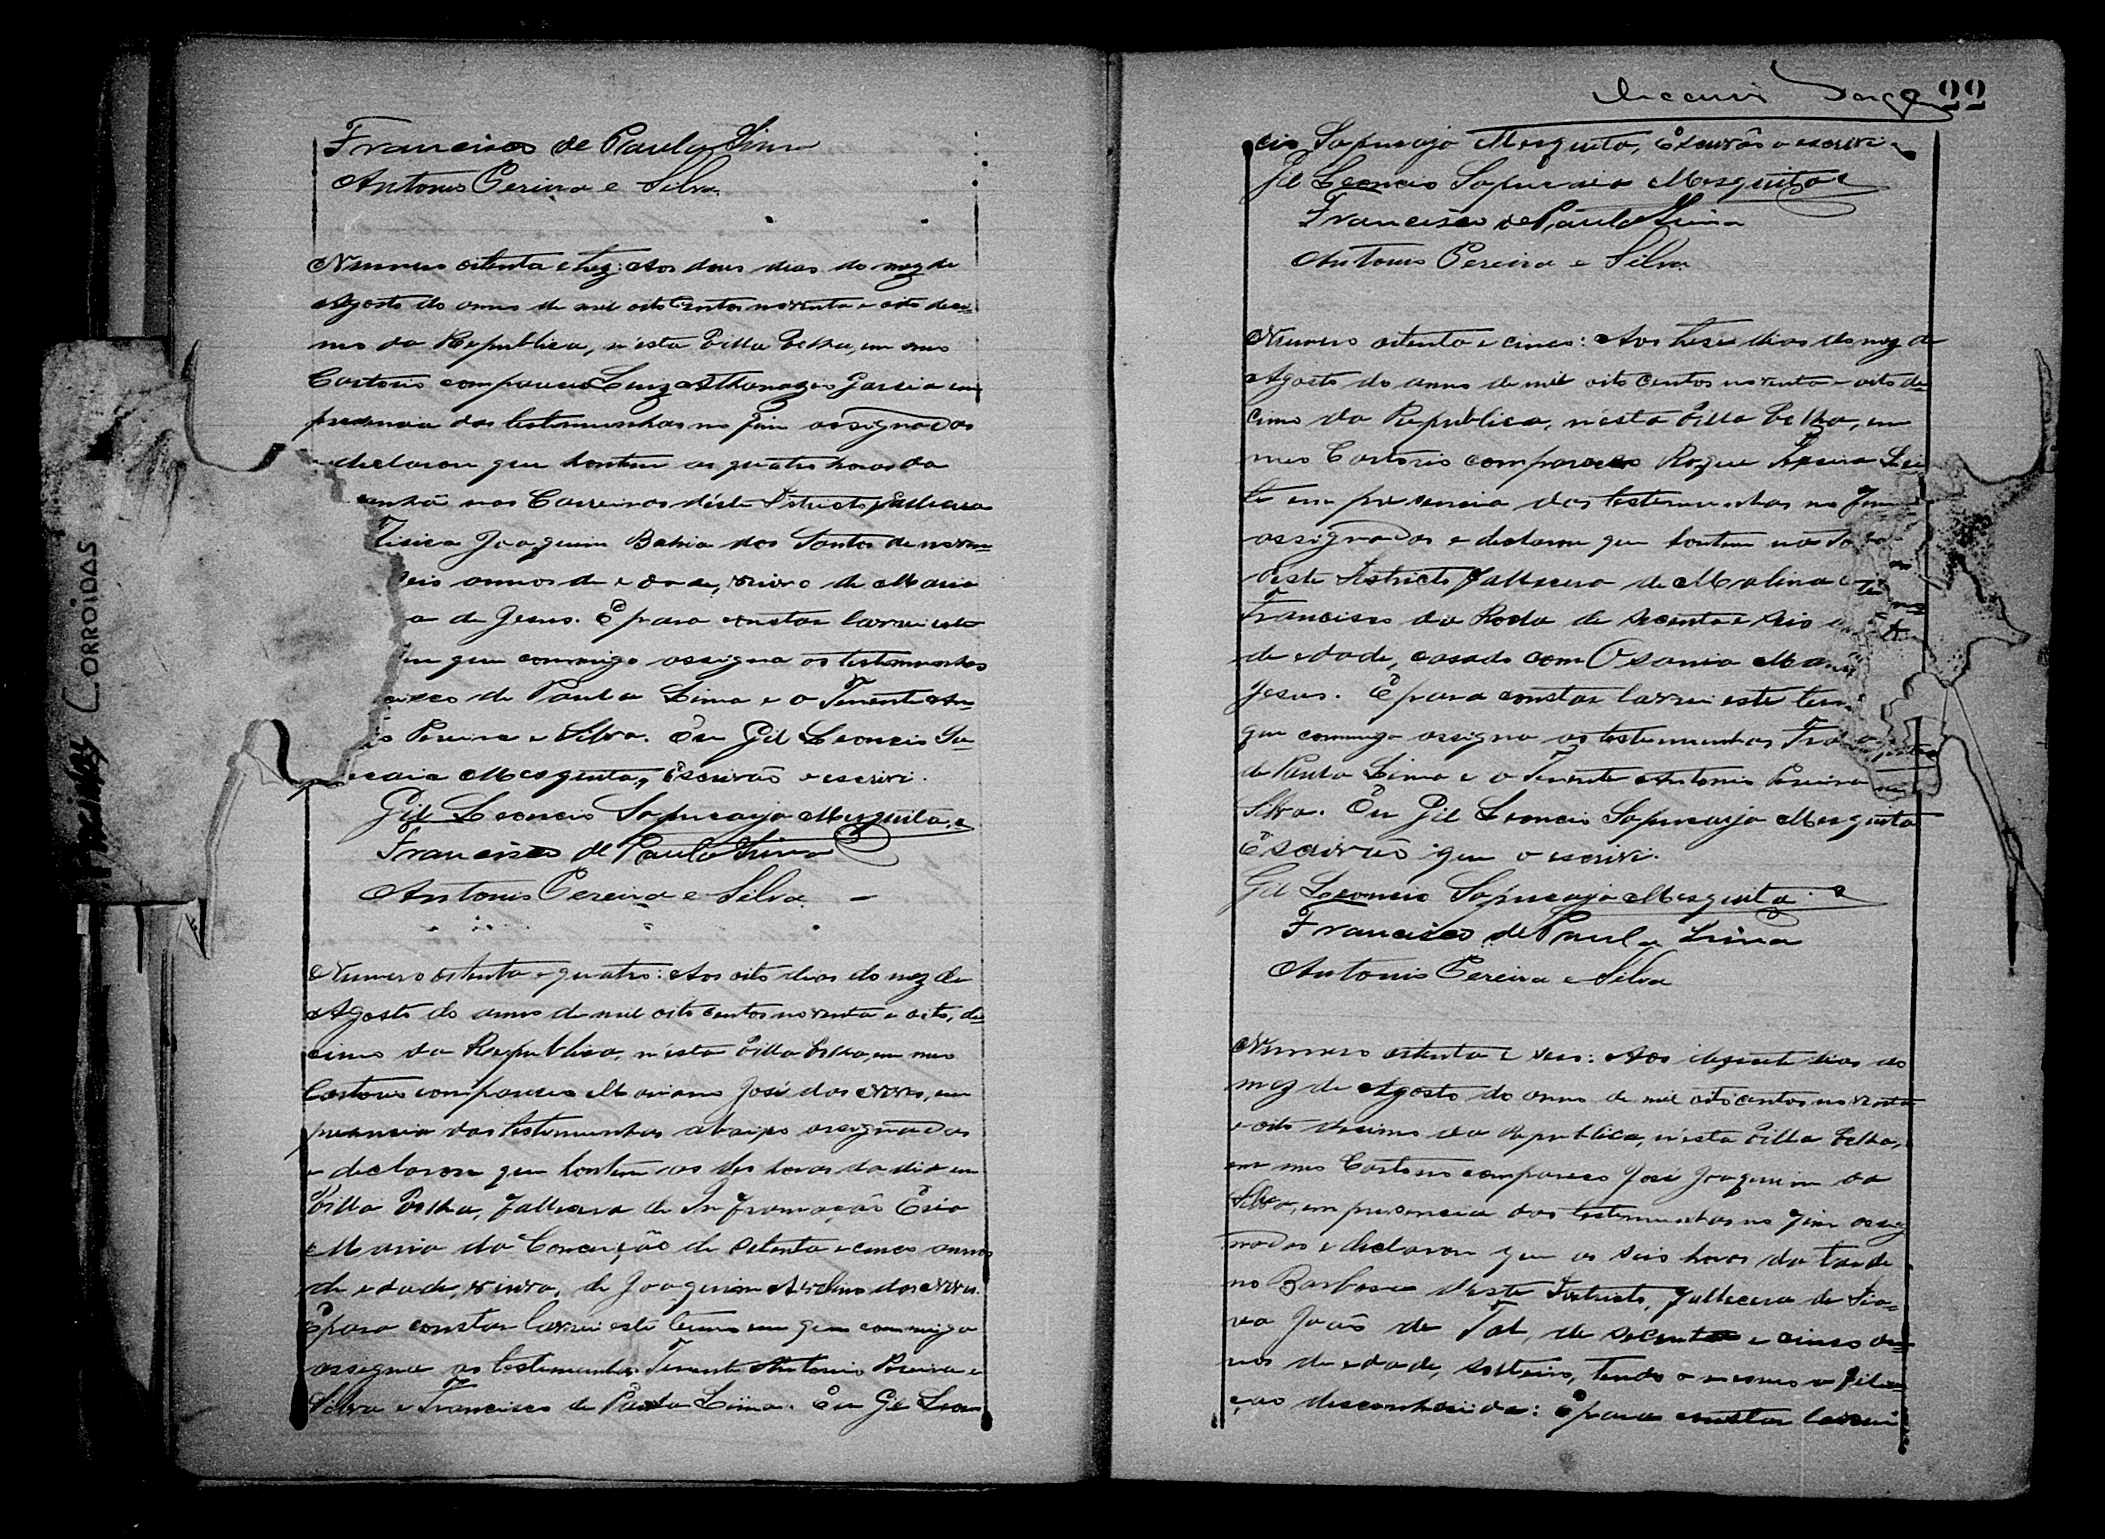 Francisco de Paula Lima
Antonio Pereira e Silva
Numero oitenta e trez: Aos dous dias do mez de
Agosto do anno de mil oito centos noventa e oito deci=
mo da Republica, n'esta Villa Velha, em meo
Cartorio compareceo Luiz Athanazio Garcia em
presencia das testemunhas no fim assignadas
declarou que hontem as quatro horas da
anhã nos Carreiros d'éste Districto fallecera
Tisica Joaquim Bahia dos Santos de noven=
seis annos de edade, viuvo de Maria
a de Jesus. E para constar lavrei este
em que commigo assigna as testemunhas
cisco de Paula Lima e o Tenente An=
o Pereira e Silva. Eu Gil Leoncio Sa=
ucaia Mesquita, Escrivão o escrivi.
Gil Leoncio Sapucaja Mesquita
Francisco de Paula Lima
Antonio Pereira e Silva
Numero oitenta e quatro: Aos oito dias do mez de
Agosto do anno de mil oito centos noventa e oito, de=
cimo da Republica, n'esta Villa Velha, em meo
Cartorio compareceo Mariano José das Neves, em
presencia das testemunhas abaixo assignadas
e declarou que hontem as des horas do dia em
Villa Velha, fallecera de Inframação
Maria da Conceição de setenta e cinco annos
de edade, viuva, de Joaquim Avelino das Neves.
E para constar lavrei este termo em que commigo
assigna as testemunhas Tenente Antonio Pereira e
Silva e Francisco de Paula Lima. Eu Gil Leon
22
cio Sapucaja Mesquita, Escrivão o escrivi.
Gil Leoncio Sapucaia Mesquita
Francisco de Paula Lima
Antonio Pereira e Silva
Numero oitenta e cinco: Aos trese dias do mez de
Agosto do anno de mil oito centos noventa e oito de=
cimo da Republica, n'esta Villa Velha, em
meo Cartorio compareceo Roque Lei
te em presencia das testemunhas no fim
assignadas e declarou que hontem
deste Districto fallecera de Malina
Francisco da Rocha de secenta e seis
de edade, casado com Osania Ma
Jesus. E para constar lavrei este ter
que commigo assigna as testemunhas Fra
de Paula Lima e o Tenente Antonio Pereira
Silva. Eu Gil Leoncio Sapucaja Mesquita
Escrivão que o escrivi.
Gil Leoncio Sapucaja Mesquita
Francisco de Paula Lima
Antonio Pereira e Silva
Numero oitenta e seis: Aos desesete dias do
mez de Agosto do anno de mil oito centos noventa
e oito decimo da Republica, n'esta Villa Velha,
em meo Cartorio compareceo José Joaquim da
Silva, em presencia das testemunhas no fim assig
nadas e declarou que as seis horas da tarde
no Barbosa deste Districto, fallecera de
João de Tal, de secenta e cinco an=
nos de edade, solteiro, tendo o mesmo a filia=
çao desconhecida: E para constar lavrei
Fracinhas CORROIDAS